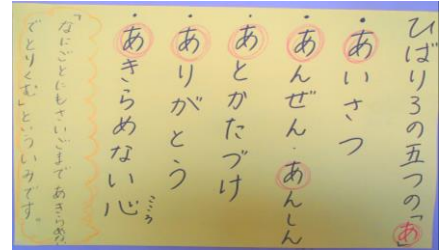 ひばり3の五つの「あ」
・あいさつ
・あんぜん・あんしん
・あとかたづけ
・ありがとう
・あきらめない心
こころ
「なにごとにもさいごまであきらめない
でとりくむ」といういみです。